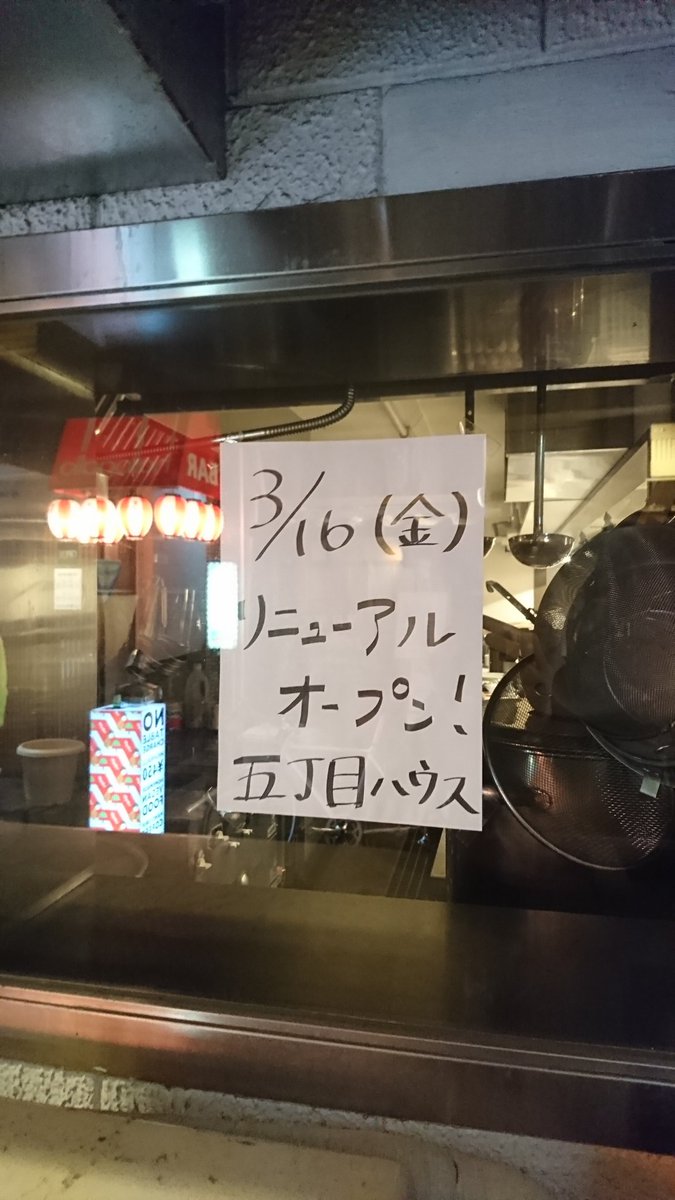 3/16(金)
リニューアル
オープン!
五丁目ハウス
BAR
NO
TABLE
CHARGE
¥450
FOOD